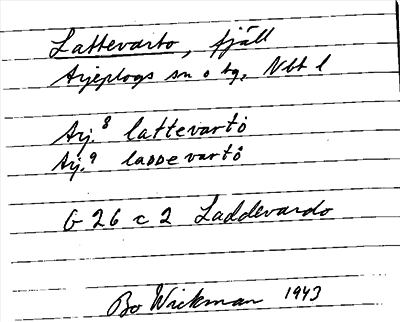 Lattevarto, fjäll
Arjeplogs sn o tg, Nbt l
Arj.8 lattevartō
Arj.9 laddevartō
G 26 c 2 Laddevardo
Bo Wickman 1943